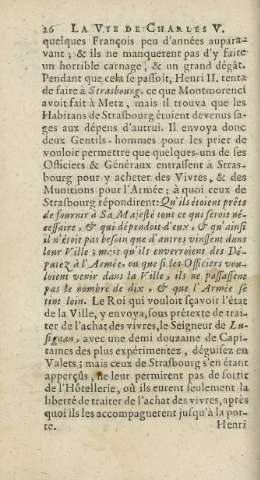 26 LA VIE DE CHARLES V.
quelques François peu d'années aupara-
vant ; & ils ne manquerent pas d'y faite
un horrible carnage, & un grand dégât.
Pendant que cela se passoit, Henri II. tenta
de faire à Strasbourg. ce que Montmorenci
avoit fait à Metz, mais il trouva que les
Habitans de Strasbourg étoient devenus sa-
ges aux dépens d'autrui. Il envoya donc
deux Gentils-hommes pour les prier de
vouloir permettre que quelques-uns de ses
Officiers & Généraux entrassent à Stras-
bourg pour y acheter des Vivres, & des
Munitions pour l'Armée ; à quoi ceux de
Strasbourg répondirent: Qu'ils étoient prêts
de fournir à Sa Majesté tout ce qui seroit né-
cessaire, & qui dépendoit d'eux, & qu'ainsi
il n'étoit pas besoin que d'autres vinssent dans
leur Ville ; mais qu'ils enverroient des Dé-
putez à l'Armée. ou que si les Officiers vou-
loient venir dans la Ville, ils ne passassent
pas le nombre de dix, & que l'Armée se
tint loin. Le Roi qui vouloit sçavoir l'état
de la Ville, y envoya, sous prétexte de trai-
ter de l'achat des vivres, le Seigneur de Lu-
signan, avec une demi douzaine de Capi-
taines des plus expérimentez, déguisez en
Valets ; mais ceux de Strasbourg s'en étant
apperçûs, ne leur permirent pas de sortir
de l'Hôtellerie, où ils eurent seulement la
liberté de traiter de l'achat des vivres, après
quoi ils les accompagnerent jusqu'à la por-
te. Henri